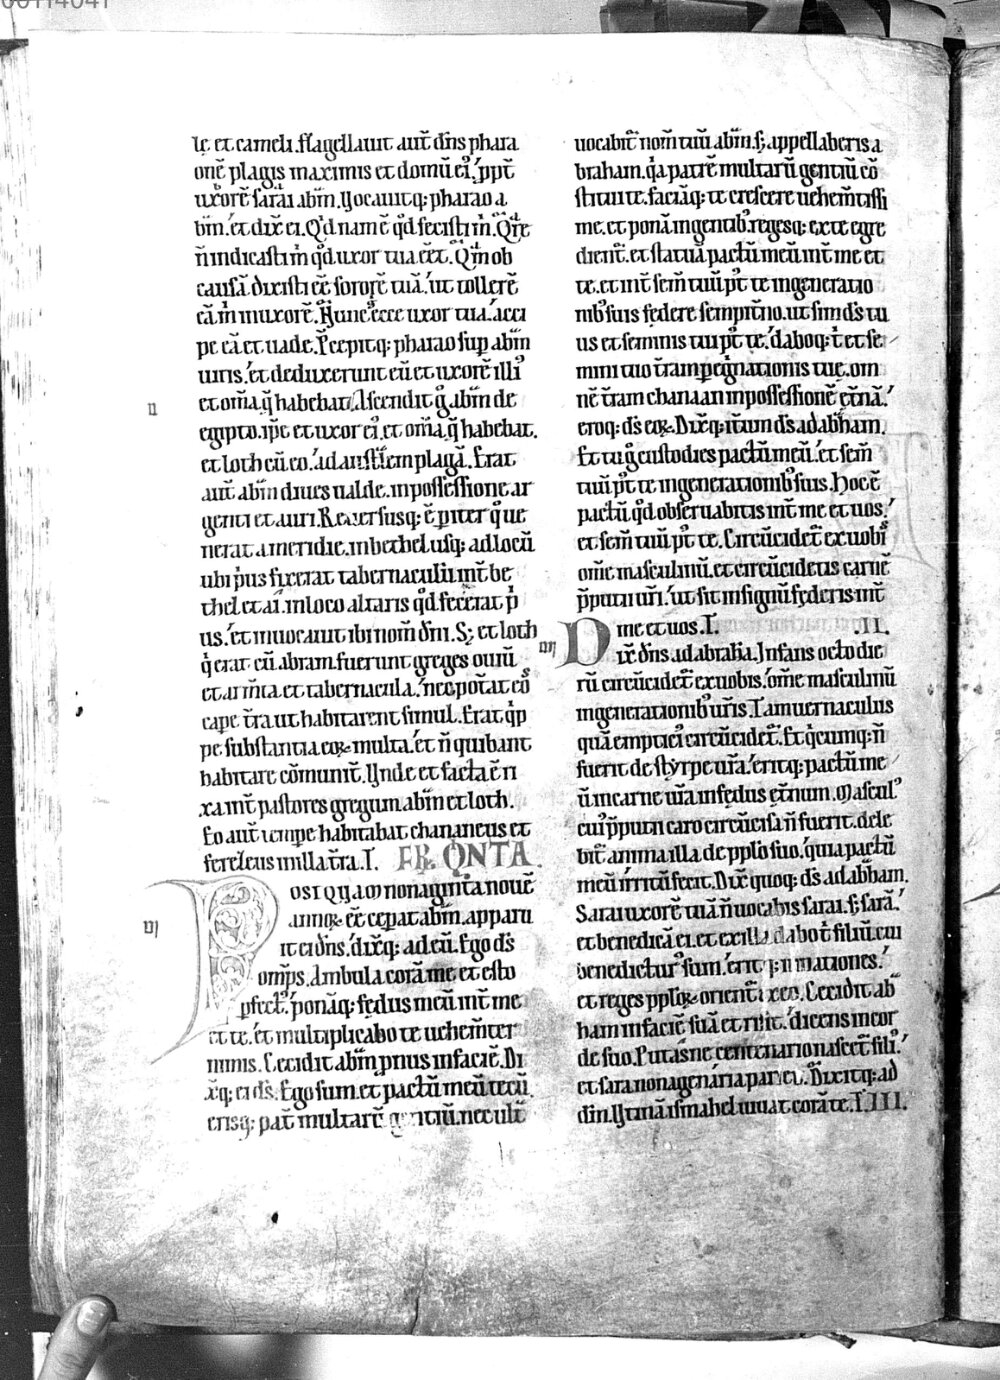 00114041
lę. et cameli. flagellauit aut̄ dn̄s phara
onē plagis maximis et domū ei᾽. ppt̄
uxorē sarai abrā̄. Vocauitq; pharao a
brā̄. et dix̄ ei. Qd nam ē qd fecisti m̄. Qre
n̄ indicasti m̄ qd uxor tua eēt. Qm ob
causā dixisti eē sororē tuā. ut tollerē
eā m̄ in uxorē. Nunc ecce uxor tua. acci
pe eā et uade. Pcepitq; pharao sup abrā̄
uiris. et deduxerunt eū et uxorē illi᾽
et om̄a q̄ habebat. Ascendit g abrā̄ de
egypto. ip̄e et uxor ei᾽. et om̄a q̄ habebat.
et loth cū eo. ad australem plagā. Erat
aut̄ abrā̄ diues ualde. in possessione ar
genti et auri. Reuersusq; ē p iter q̊ ue
nerat a meridie. in bethel usq; ad locū
ubi p̍us fixerat tabernaculū int̄ be
thel et ai. in loco altaris qd fecerat p̍
us. et inuocauit ibi nom̄ dn̄i. S; et loth
q̍ erat cū abram fuerunt greges ouiū
et arm̄ta et tabernacula. nec pot̄at eos
cape tr̄a ut habitarent simul. Erat q̍p
pe substantia eoꝝ multa. et n̄ quibant
habitare cōmunit̄. Vnde et facta ē ri
xa int̄ pastores gregum abrā̄ et loth.
Eo aut̄ tempe habitabat chananeus et
ferezeus in illa tr̄a. I. FR. QNTA.
II
III
Postquam nonaginta nouē
annoꝝ eē cepat abrā̄. apparu
it ei dn̄s. dix̄q; ad eū. Ego ds̄
omps. Ambula corā me et esto
pfect᾽. ponāq; fędus meū int̄ me
et te. et multiplicabo te uehem̄ter
nimis. Cecidit abrā̄ pnus in faciē. Di
x̄q; ei ds̄. Ego sum. et pactū meū tecū.
erisq; pat̄ multarū gentiū. nec ult̄
uocabit̄ nom̄ tuū abrā̄. s; appellaberis a
braham. q̍a patrē multarū gentiū cō
stitui te. faciāq; te crescere uehem̄tissi
me. et ponā in gentib᾽. regesq; ex te egre
dient̄. et statuā pactū meū int̄ me et
te. et int̄ sem̄ tuū pt᾽ te in generatio
nib᾽ suis fędere sempit̄no. ut sim ds̄ tu
us et seminis tui pt᾽ te. daboq; t̍ et se
mini tuo tr̄am peg̍nationis tuę. om
nē tr̄am chanaan in possessionē et̄nā.
eroq; ds̄ eoꝝ. Dix̄q; it̄um ds̄ ad abrh̄am.
Et tu g̊ custodies pactū meū. et sem̄
tuū pt᾽ te in generationib᾽ suis. Hoc ē
pactū qd obseruabitis int̄ me et uos.
et sem̄ tuū pt᾽ te. Circūcidet̄ ex uobis
om̄e masculinū. et circūcidetis carnē
p̍putii ur̄i. ut sit in signū fęderis int̄
me et uos. I. .II.
IIII
Dix̄ dn̄s ad abraha. Infans octo die
rū circūcidet̄ ex uobis. om̄e masculinū
in generationib᾽ ur̄is. Tam uernaculus
quā empticius circūcidet̄. Et q̍cumq; n̄
fuerit de styrpe ur̄a. eritq; pactū me
ū in carne ur̄a in fędus et̄num. Mascul᾽
cui᾽ p̍putii caro circūcisa n̄ fuerit. dele
bit̄ anima illa de pplo suo. quia pactū
meū irritū fecit. Dix̄ quoq; ds̄ ad abh̄am.
Sarai uxorē tuā n̄ uocabis sarai. s; sarā.
et benedicā ei. et ex illa dabo t̍ filiū. cui
benedictur᾽ sum. erit q; in nationes.
et reges pploꝝ orient̄ ex eo. Cecidit ab
ham in faciē suā et risit. dicens in cor
de suo. Putasne centenario nascet̄ fili᾽.
et sara nonagenaria pariet. Dixitq; ad
dn̄m. Vtinā ismahel uiuat corā te. I. III.